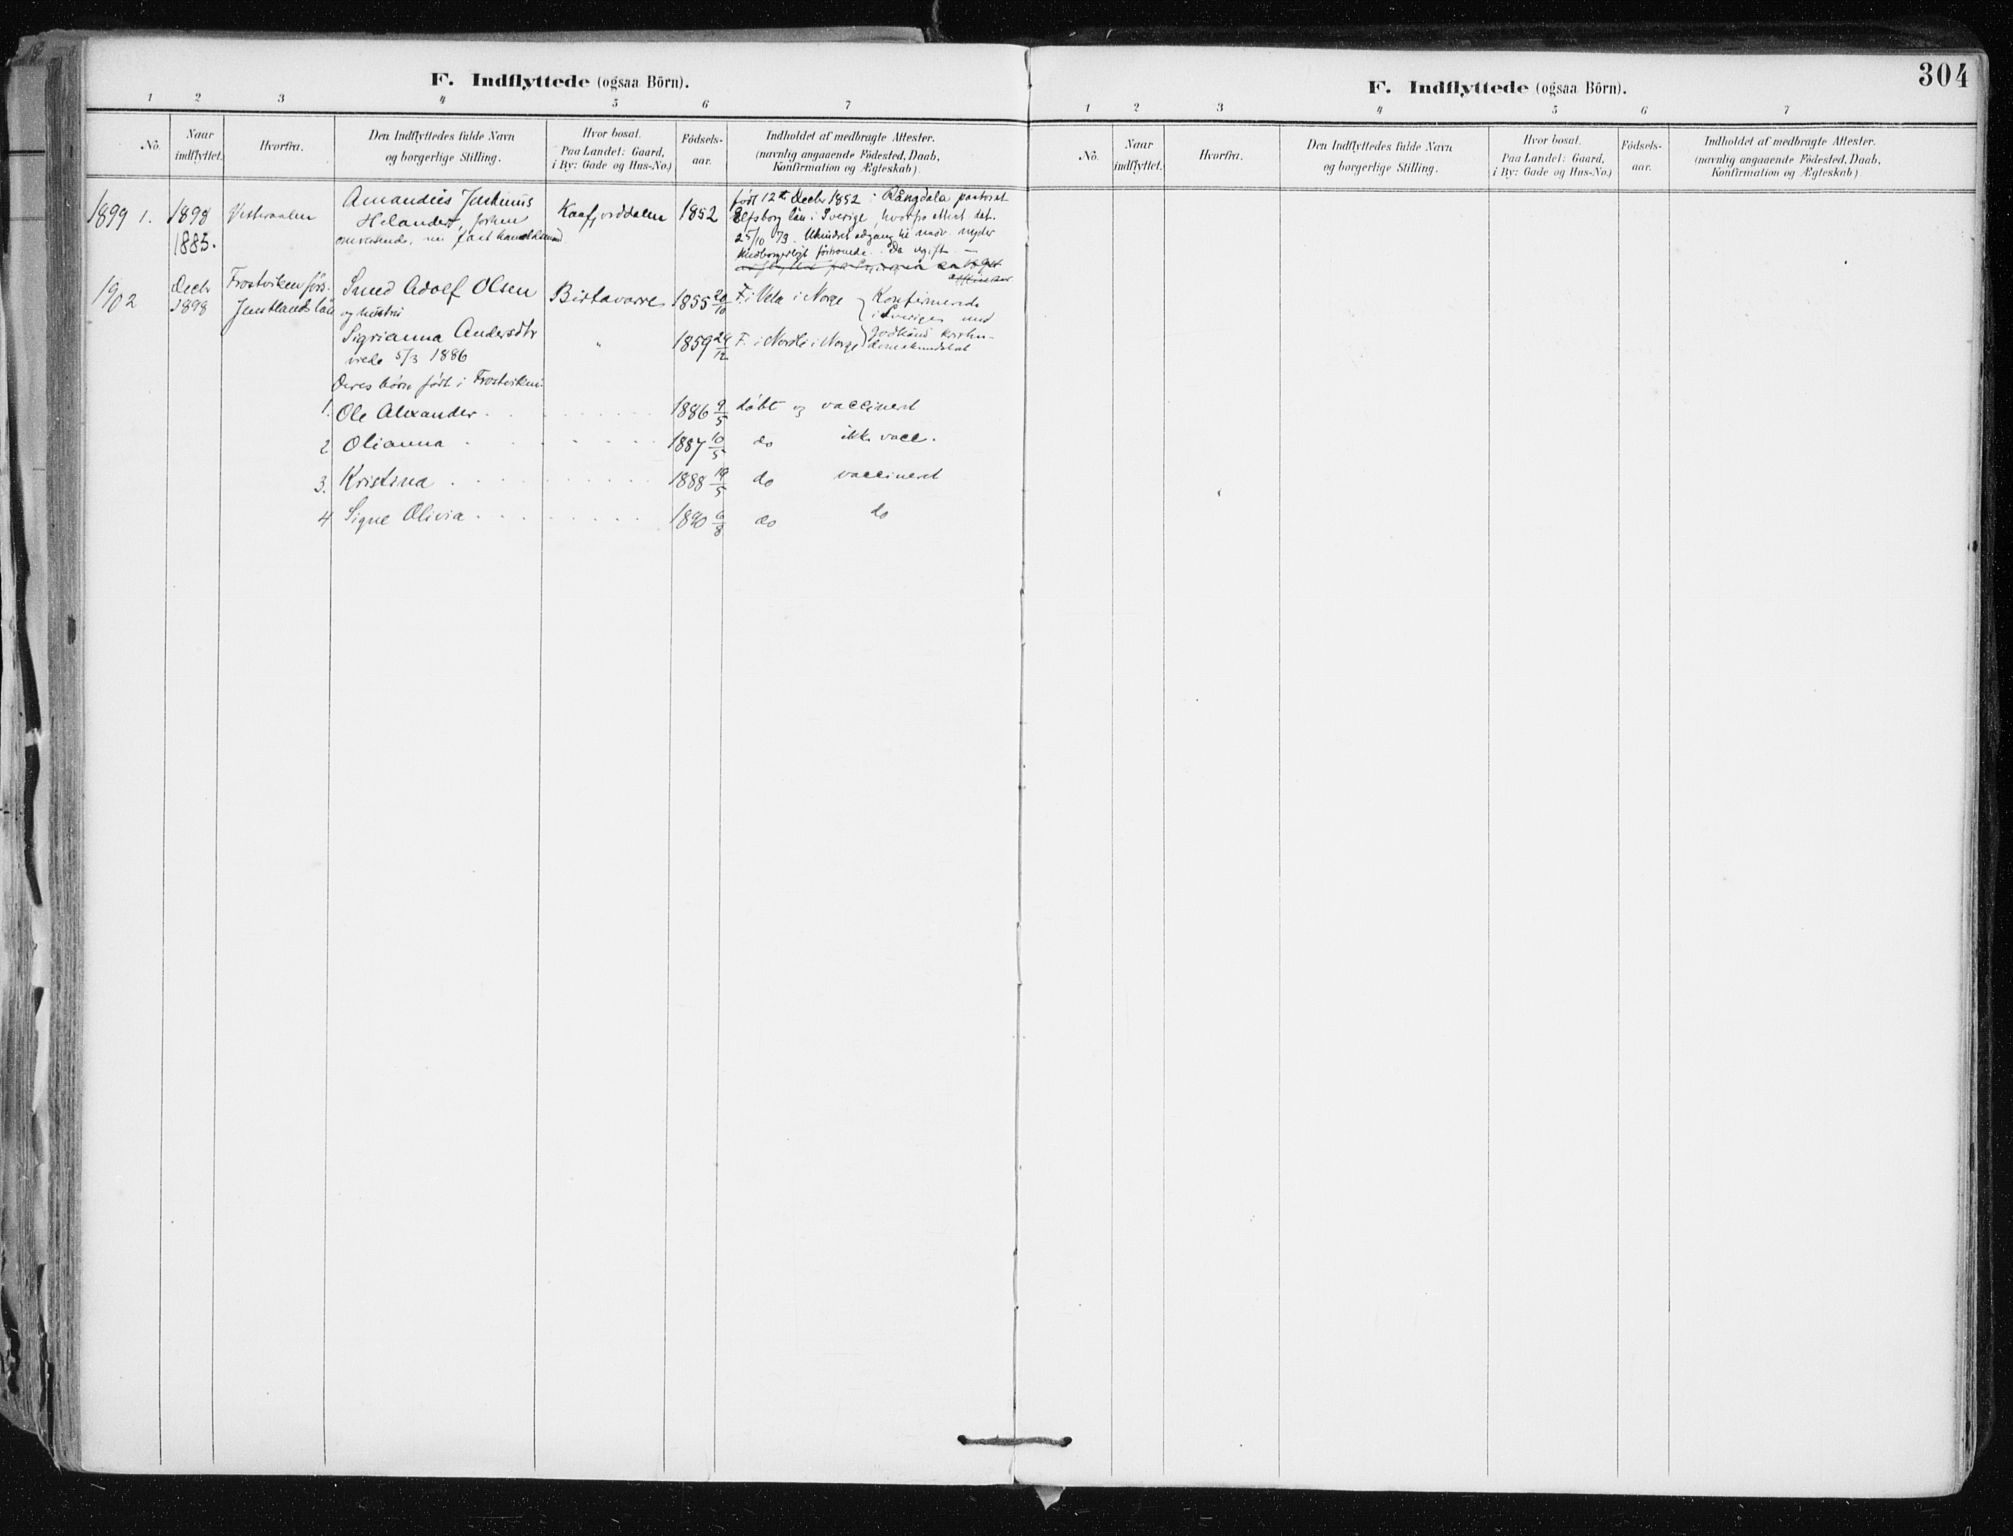 F. Indflyttede (ogsaa Börn).
1 2 3 4 5 6 7
No.
Naar indflyttet.
Hvorfra.
Den Indflyttedes fulde Navn
og borgerlige Stilling.
Hvor bosat.
Paa Landet: Gaard,
i By: Gade og Hus-No.)
Födsels-
aar.
Indholdet af medbragte Attester.
(navnlig angaaende Födested, Daab,
Konfirmation og Ægteskab).
1899 1. 1898 Vesteraalen Amandus Justinus Kaafjorddalen 1852
1885. Helander,
nu fast handelsmand
født 12te Decbr 1852 i Rångdala pastorat
Elfsborg län i Sverige, hvorfra attest dat.
25/10 73. Uhindret adgang til nadv. nyder
medborgerligt förtroende. Da ugift
1902 Decbr 1898
Frostviken förs.
Jemtlands län
Smed Adolf Olsen Birtavarre 1855 20/10 F. i Norge Konfirmerede
og hustru i Sverige med
Sigrianna Andersdtr " 1859 24/12 F. i i Norge godkänd kristen-
viede 5/3 1886 domskundskab
Deres börn født i Frostviken:
1. Ole Alexander 1886 9/5 døbt og vaccineret
2 Olianna 1887 10/5 do ikke vacc.
3. Kristina 1888 19/5 do vaccineret
4 Signe Olivia 1890 6/8 do do
304
F. Indflyttede (ogsaa Börn).
1 2 3 4 5 6 7
No.
Naar
indflyttet.
Hvorfra.
Den Indflyttedes fulde Navn
og borgerlige Stilling.
Hvor bosat.
Paa Landet: Gaard,
i By: Gade og Hus-No.)
Födsels-
aar.
Indholdet af medbragte Attester.
(navnlig angaaende Födested, Daab,
Konfirmation og Ægteskab).